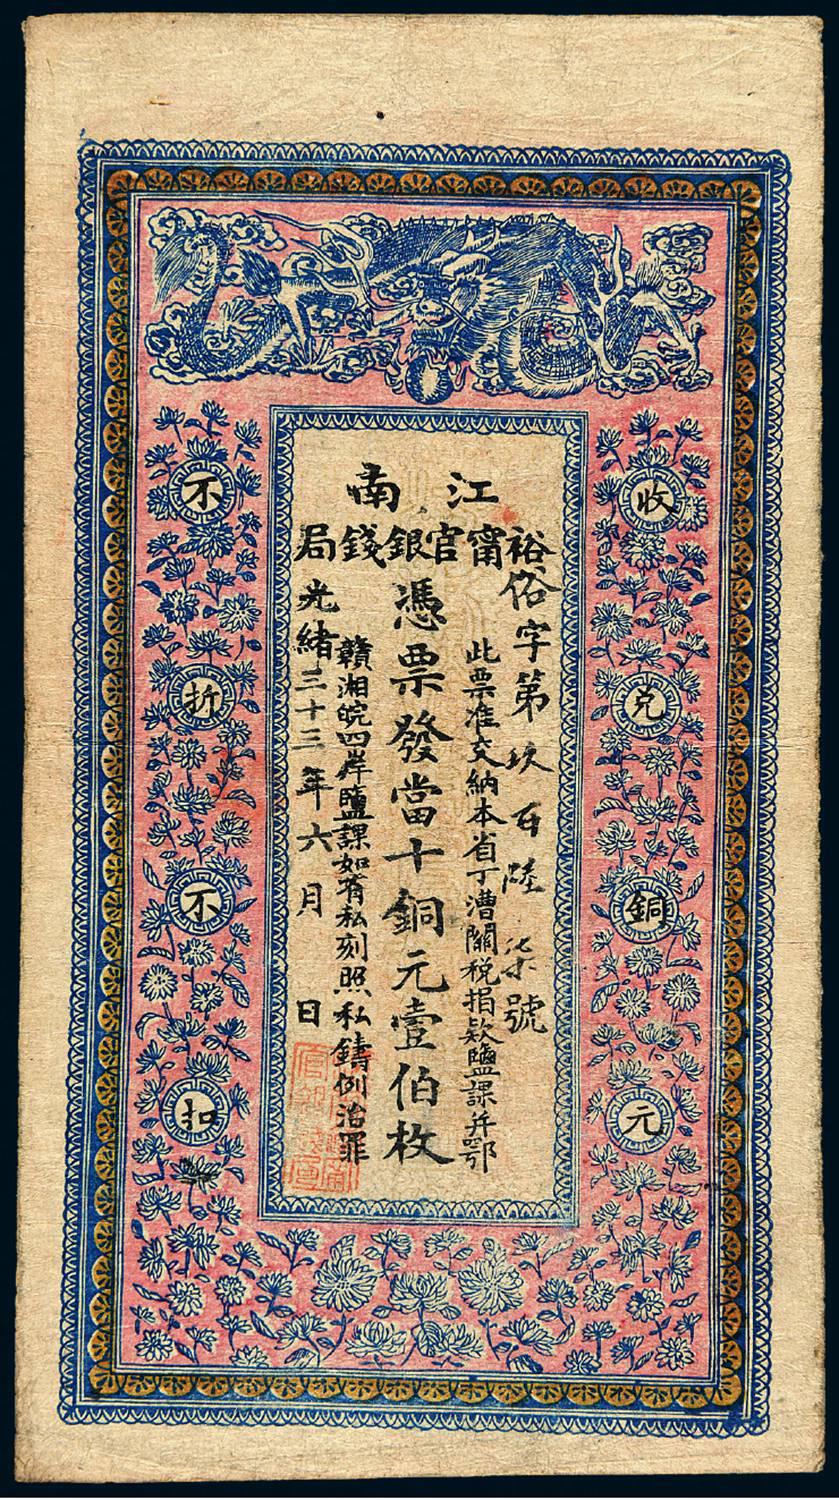 江南
裕甯官銀錢局
俗字第玖百陸柒號
此票准交納本省丁漕關税捐欵鹽課并鄂
憑票發當十銅元壹伯枚
贛湘皖四岸鹽課如有私刻照私鑄例治罪
光緒三十三年六月 日
收兌銅元
不折不扣